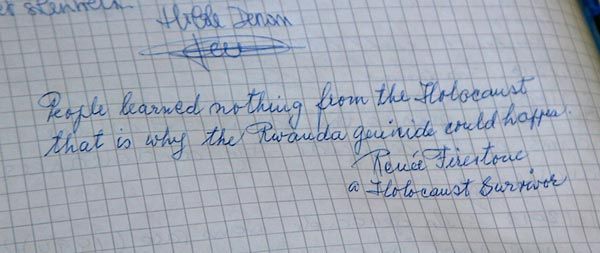 Hilde
People learned nothing from the Holocaust
that is why the Rwanda geuinide could happen.
Renée Firestone
a Holocaust Survivor